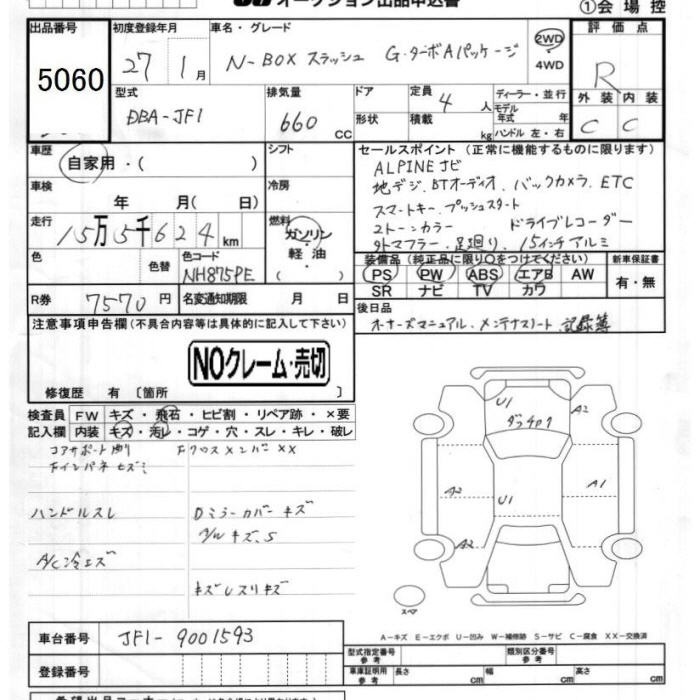 オークション出品申込書
①会場控
出品番号 5060
初度登録年月 27 1月
車名・グレード N-BOX スラッシュ G・ターボAパッケージ
2WD
4WD
評価点 R
外装 内装
C C
型式 DBA-JF1
排気量 660 cc
ドア
形状
定員 4 人
積載 kg
ディーラー・並行
モデル年式 年
ハンドル 左・右
車歴 自家用・( )
シフト
車検 年 月( 日)
冷房
走行 15万5千624km
燃料 ガソリン・軽油・( )
色 色替
色コード NH875PE
R券 7570円
名変通知期限 月 日
セールスポイント (正常に機能するものに限ります)
ALPINEナビ
地デジ、BTオーディオ、バックカメラ、ETC
スマートキー、プッシュスタート
2トーンカラー ドライブレコーダー
外トマフラー・足廻り、15インチアルミ
装備品(純正品に限り○をつけてください)
新車保証書
PS PW ABS エアB AW
SR ナビ TV カワ
有・無
後日品
オーナーズマニュアル、メンテナスノート、記録簿
注意事項申告欄(不具合内容等は具体的に記入して下さい)
NOクレーム・売切
修復歴 有 〔箇所 〕
検査員記入欄
FW キズ・飛石・ヒビ割・リペア跡・×要
内装 キズ・汚レ・コゲ・穴・スレ・キレ・破レ
コアサポート
Fクロスメンバー××
Fインパネヒズミ
ハンドルスレ
Dミラーカバーキズ
A/Wキズ、S
A/C冷エズ
キズレスリキズ
U1
ダッチアリ
A2
A2
U1
A1
A2
スペア
A－キズ E－エクボ U－凹み W－補修跡 S－サビ C－腐食 XX－交換済
車台番号 JF1-9001593
登録番号
型式指定番号 参考
類別区分番号 参考
車庫証明用 参考 長さ cm 幅 cm 高さ cm